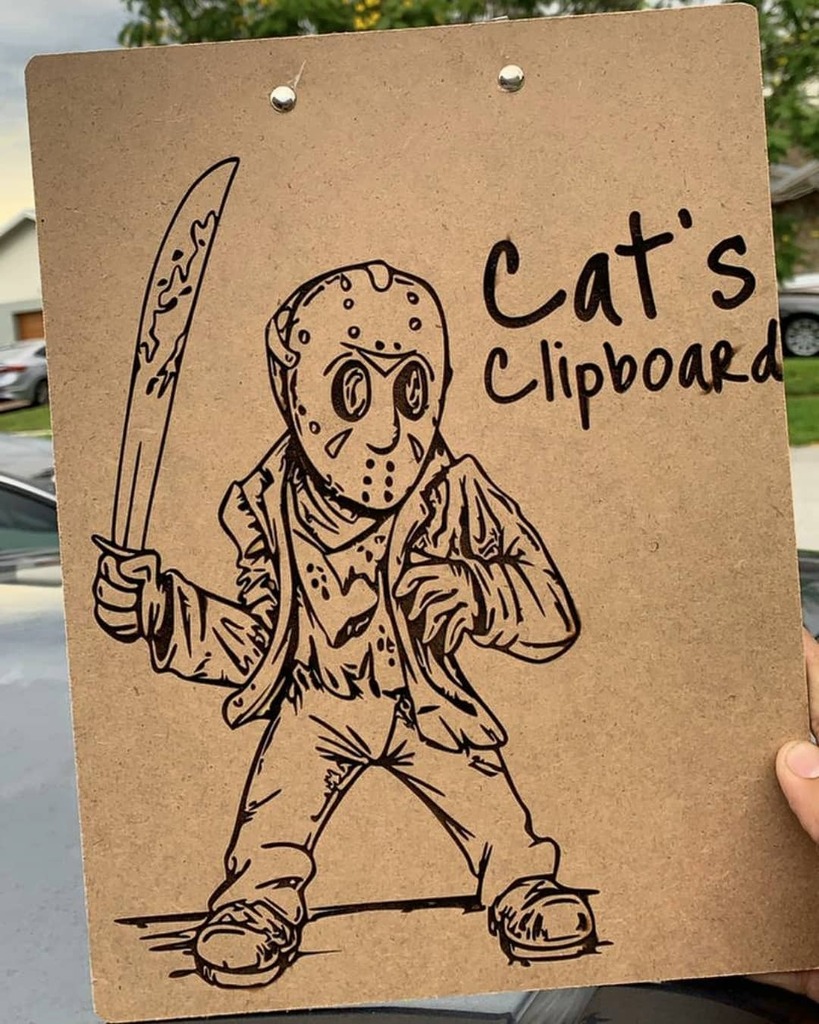 Cat's
Clipboard